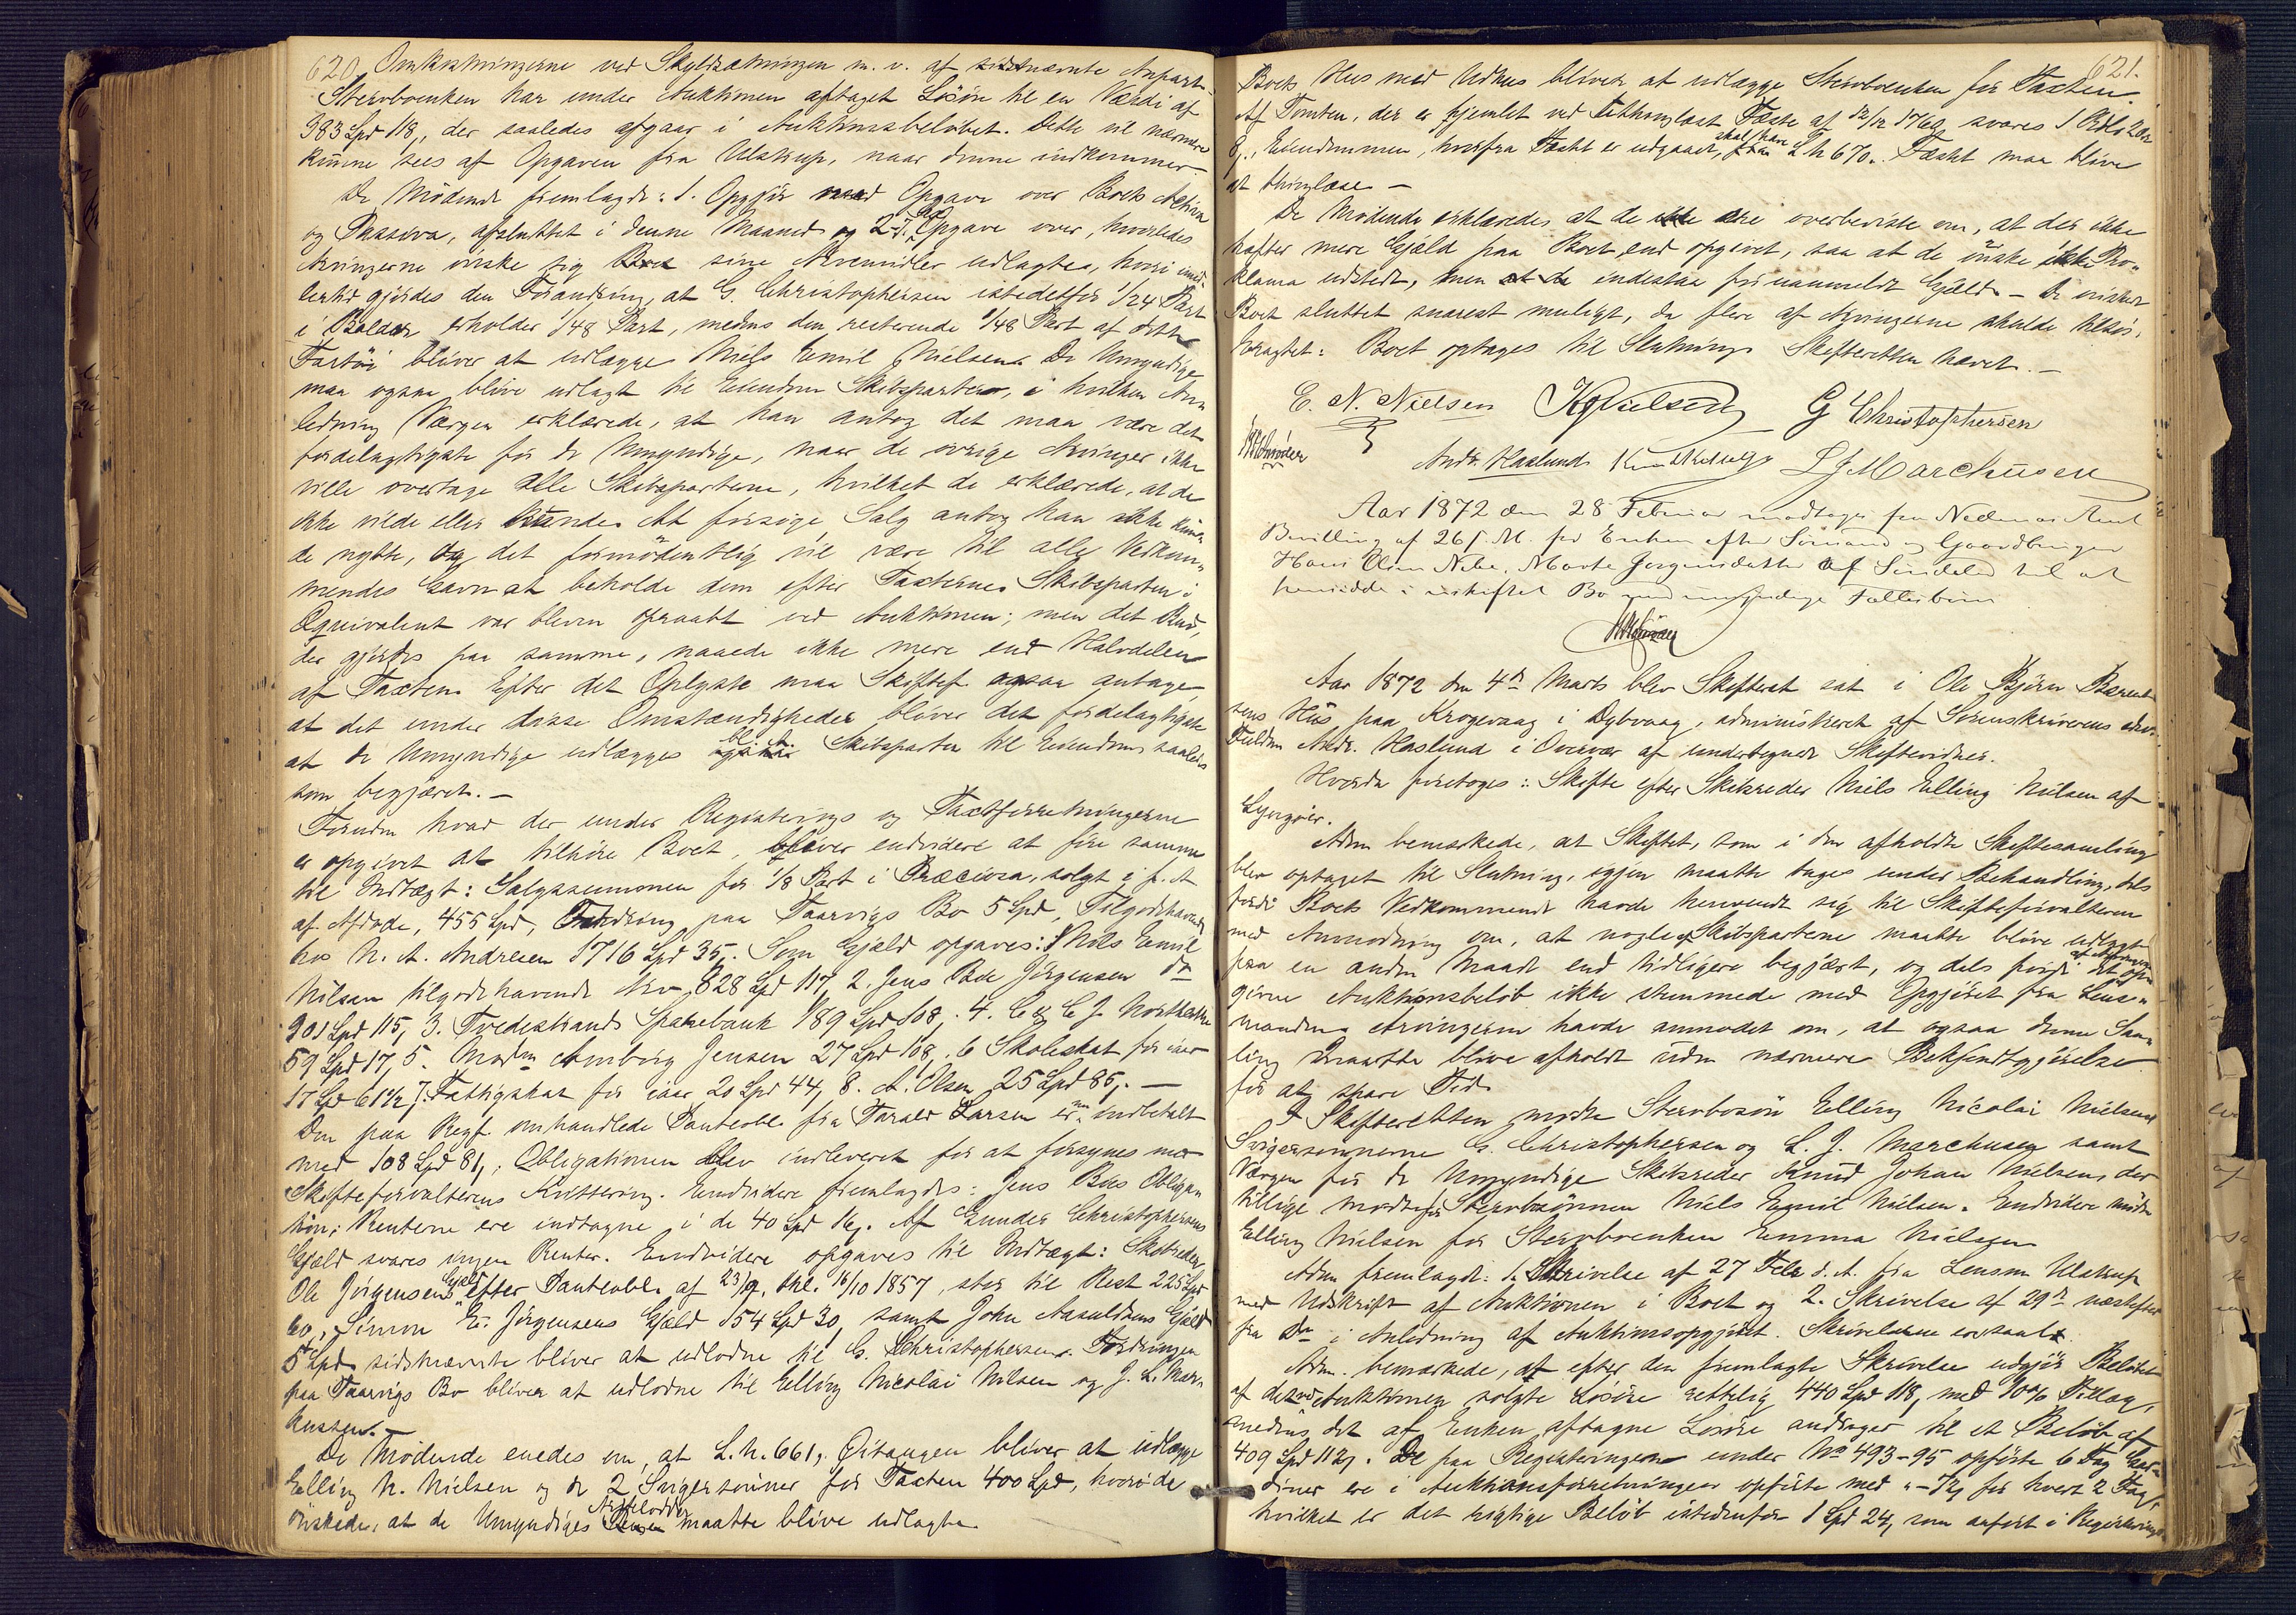 620
Omkostningerne ved Skyldsætningen m. v. af sidstnævnte Anpart.
Stervboenken har under Auktionen aftaget Løsøre til en Værdi af
383 Spd 118, der saaledes afgaar i Auktionsbeløbet. Dette vil nærmere
kunne sees af Opgaven fra Ulstrup, naar denne indkommer.
De Mødende fremlagde: 1. Opgjør med Opgave over Boets Activa
og Passiva, afsluttet i denne Maaned og 2. Opgave over, hvorledes
Arvingerne ønske sig sine Arvemidler udlagte, hvori imid-
lertid gjordes den Forandring, at G. Christophersen istedetfor 1/24 Part
i Balder erholder 1/48 Part, medens den resterende 1/48 Part af dette
Fartøi bliver at udlægge Niels Emil Nielsen. De Umyndige
maa ogsaa blive udlagt til Eiendom Skibsparter, i hvilken An-
ledning Værgen erklærede, at han antog det maa være det
fordelagtigste for de Umyndige, naar de øvrige Arvinger ikke
ville overtage alle Skibsparterne, hvilket de erklærede, at de
ikke vilde eller kunde. At forsøge Salg antog han ikke kunne
de nytte, og det formodentlig vil være til alle Vedkom-
mendes Gavn at beholde dem efter Taxterne. Skibsparten i
Æquivalent var bleven opraabt ved Auktionen; men det Bud,
der gjordes paa samme, naaede ikke mere end Halvdelen
af Taxten. Efter det Oplyste maa Skiftef. ogsaa antage,
at det under disse Omstændigheder bliver det fordelagtigste
at de Umyndige udlægges Skibsparter til Eiendom saaledes
som begjæret. —
Foruden hvad der under Registerings og Taxtforretningerne
er opgivet at tilhøre Boet, bliver endvidere at føre samme
til Indtægt: Salgssummen for 1/8 Part i Præciosa, solgt i f. A
af Afdøde, 455 Spd, Fordring paa Taarvigs Bo 5 Spd, Tilgodehavende
hos N. A. Andresen 1716 Spd 35,. Som Gjæld opgaves: 1 Niels Emil
Nilsen tilgodehavende Arv 828 Spd 117, 2. Jens Boe Jørgensen do
901 Spd 115, 3. Tvedestrands Sparebank 189 Spd 108,. 4.
59 Spd 17, 5. Madm Amborg Jensen 27 Spd 108,. 6 Skoleskat for iaar
17 Spd 61 1/2, 7. Fattigskat for iaar 20 Spd 44, 8. A. Olsen 25 Spd 85,. —
Den paa Regf. omhandlede Panteobl. fra Tarald Larsen er nu indbetalt
med 108 Spd 81,; Obligationen blev indleveret for at forsynes med
Skifteforvalterens Kvittering. Endvidere fremlagdes: Jens Boes Obliga-
tion; Renterne ere indtagne i de 40 Spd 16,. Af Gunder Christophersens
Gjæld svares ingen Renter. Endvidere opgaves til Indtægt: Skibsreder
Ole Jørgensens Gjæld efter Panteobl. af 23/9, thl. 16/10 1857, stor til Rest 225 Spd
60,, Simon Jørgensens Gjæld 154 Spd 30, samt John Aasuldsens Gjæld
5 Spd. sidstnævnte bliver at udlodne til G. Christophersen. Fordringen
paa Taarvigs Bo bliver at udlodne til Elling Nicolai Nilsen og J. L. Mar-
kussen. —
De Mødende enedes om, at L. N. 661, bliver at udlægge
Elling N. Nielsen og de 2 Svigersønner for Taxten 400 Spd, hvorhos de
ønskede, at de Umyndiges Arvelodder maatte blive udlagte
621.
Boets Hus med Udhus bliver at udlægge Stervboenken for Taxten.
Af Tomten, der er hjemlet ved thinglæst Fæste af 12/12 1769, svares 1 Rdlr 2
8,. Eiendommen, hvorfra Fæstet er udgaaet, skal have L N 670. Fæstet maa blive
at thinglæse. —
De Mødende erklærede, at de ere overbeviste om, at der ikke
hæfter mere Gjæld paa Boet, end opgivet, saa at de ønske ikke Pro-
klama udstedt, men indestaa for uanmeldt Gjæld. — De ønskede
Boet sluttet snarest muligt, da flere af Arvingerne skulde tilsøs.
Eragtet: Boet optages til Slutning. Skifteretten hævet. —
E. N. Nielsen KJNielsen G Christophersen
Andr. Haslund LJMarchusen
Aar 1872 den 28 Februar modtages fra Nedenæs Amt
Bevilling af 26 s. M. for Enken efter Sømand og Gaardbruger
Hans Olsen Marte Jørgensdatter af Søndeled til at
hensidde i uskiftet Bo med umyndige Fællesbørn
Aar 1872 den 4de Marts blev Skifteret sat i Ole Bjørn Berent-
sens Hus paa Krogevaag i Dybvaag, administreret af Sorenskriverens edsv.
Fuldm Andr. Haslund i Overvær af undertegnede Skiftevidner.
Hvorda foretoges: Skifte efter Skibsreder Niels Elling Nilsen af
Lyngøer.
Adm bemærkede, at Skiftet, som i den afholdte Skiftesamling
blev optaget til Slutning, igjen maatte tages under Behandling, dels
fordi Boets Vedkommende havde henvendt sig til Skifteforvalteren
med Anmodning om, at nogle af Skibsparterne maatte blive udlagte
paa en anden Maade end tidligere begjært, og dels fordi det af Arvingerne op-
givne Auktionsbeløb ikke stemmede med Opgjøret fra Lens-
manden. Arvingerne havde anmodet om, at ogsaa denne Sam-
ling maatte blive afholdt uden nærmere Bekjendtgjørelse
for at spare Tid.
I Skifteretten mødte Stervbosøn Elling Nicolai Nielsen
Svigersønnerne G. Christophersen og L. J. Marchusen samt
Værgen for de Umyndige Skibsreder Knud Johan Nielsen, der
tillige mødte for Stervbosønnen Niels Emil Nielsen. Endvidere mødte
Elling Nielsen for Stervboenken Emma Nielsen
Adm fremlagde: 1. Skrivelse af 27 Febr d. A. fra Lensm Ulstrup
med Udskrift af Auktionen i Boet og 2. Skrivelse af 29de næstefter
fra Do i Anledning af Auktionsopgjøret. Skrivelserne ere saal.
Adm. bemærkede, at efter den fremlagte Skrivelse udgjør Beløbet
af det ved Auktionen solgte Løsøre rettelig 440 Spd 118, med 10% Tillæg,
medens det af Enken aftagne Løsøre andrager til et Beløb af
409 Spd 112,. De paa Registeringen under No 493-95 opførte 6 Fag Gar-
diner ere i Auktionsforretningen opførte med "-72, for hvert 2 Fag,
hvilket er det rigtige Beløb istedenfor 1 Spd 24, som anført i Registerings